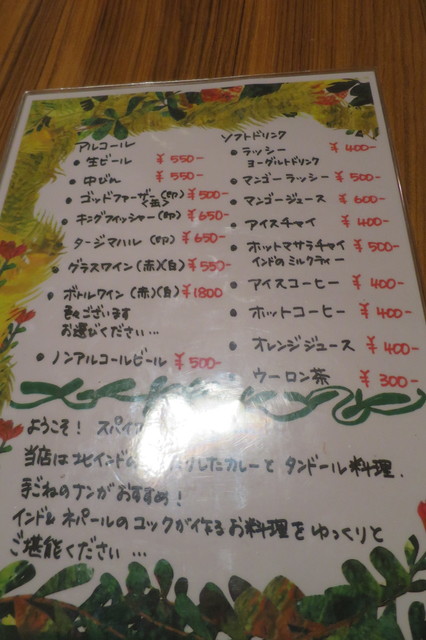 アルコール
・生ビール ¥550-
・中びん ¥550-
・ゴッドファーザー(EP) ¥500-
・キングフィッシャー(EP) ¥650-
タージマハル(EP) ¥650-
・グラスワイン(赤)(白) ¥550-
・ボトルワイン(赤)(白) ¥1800
色々ございます
お選びください…
・ノンアルコールビール ¥500-
ソフトドリンク
・ラッシー ¥400-
ヨーグルトドリンク
・マンゴーラッシー ¥500-
・マンゴージュース ¥600-
・アイスチャイ ¥400-
・ホットマサラチャイ ¥500-
インドのミルクティー
・アイスコーヒー ¥400-
・ホットコーヒー ¥400-
・オレンジジュース ¥400-
ウーロン茶 ¥300-
ようこそ! スパイ
当店は北インドの したカレーと タンドール料理.
手ごねのナンがおすすめ!
インド& ネパールのコックが作るお料理をゆっくりと
ご堪能ください…